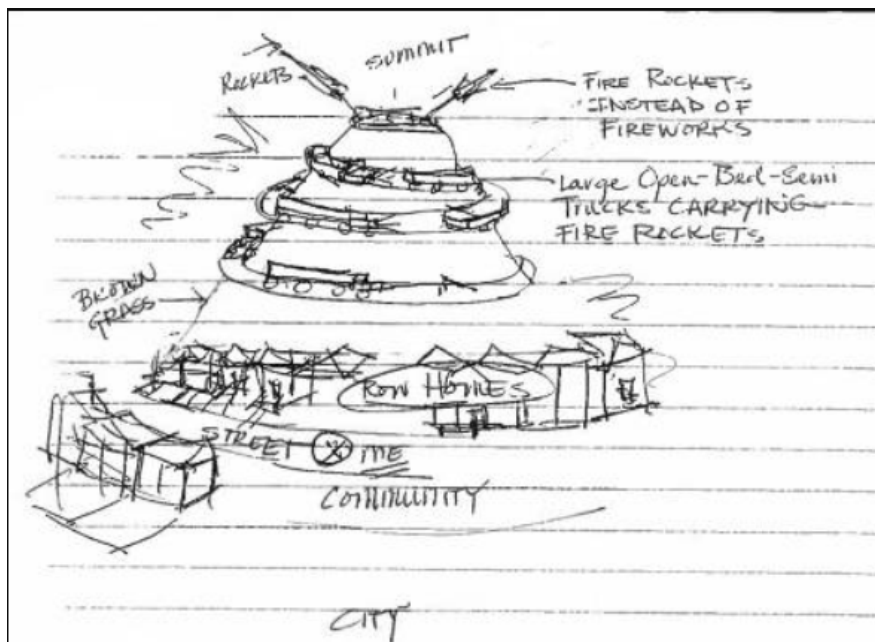 SUMMIT
ROCKETS
FIRE ROCKETS
INSTEAD OF
FIREWORKS
Large Open-Bed-Semi
TRUCKS CARRYING
FIRE ROCKETS
BROWN
GRASS
ROW HOMES
STREET ME
COMMUNITY
CITY